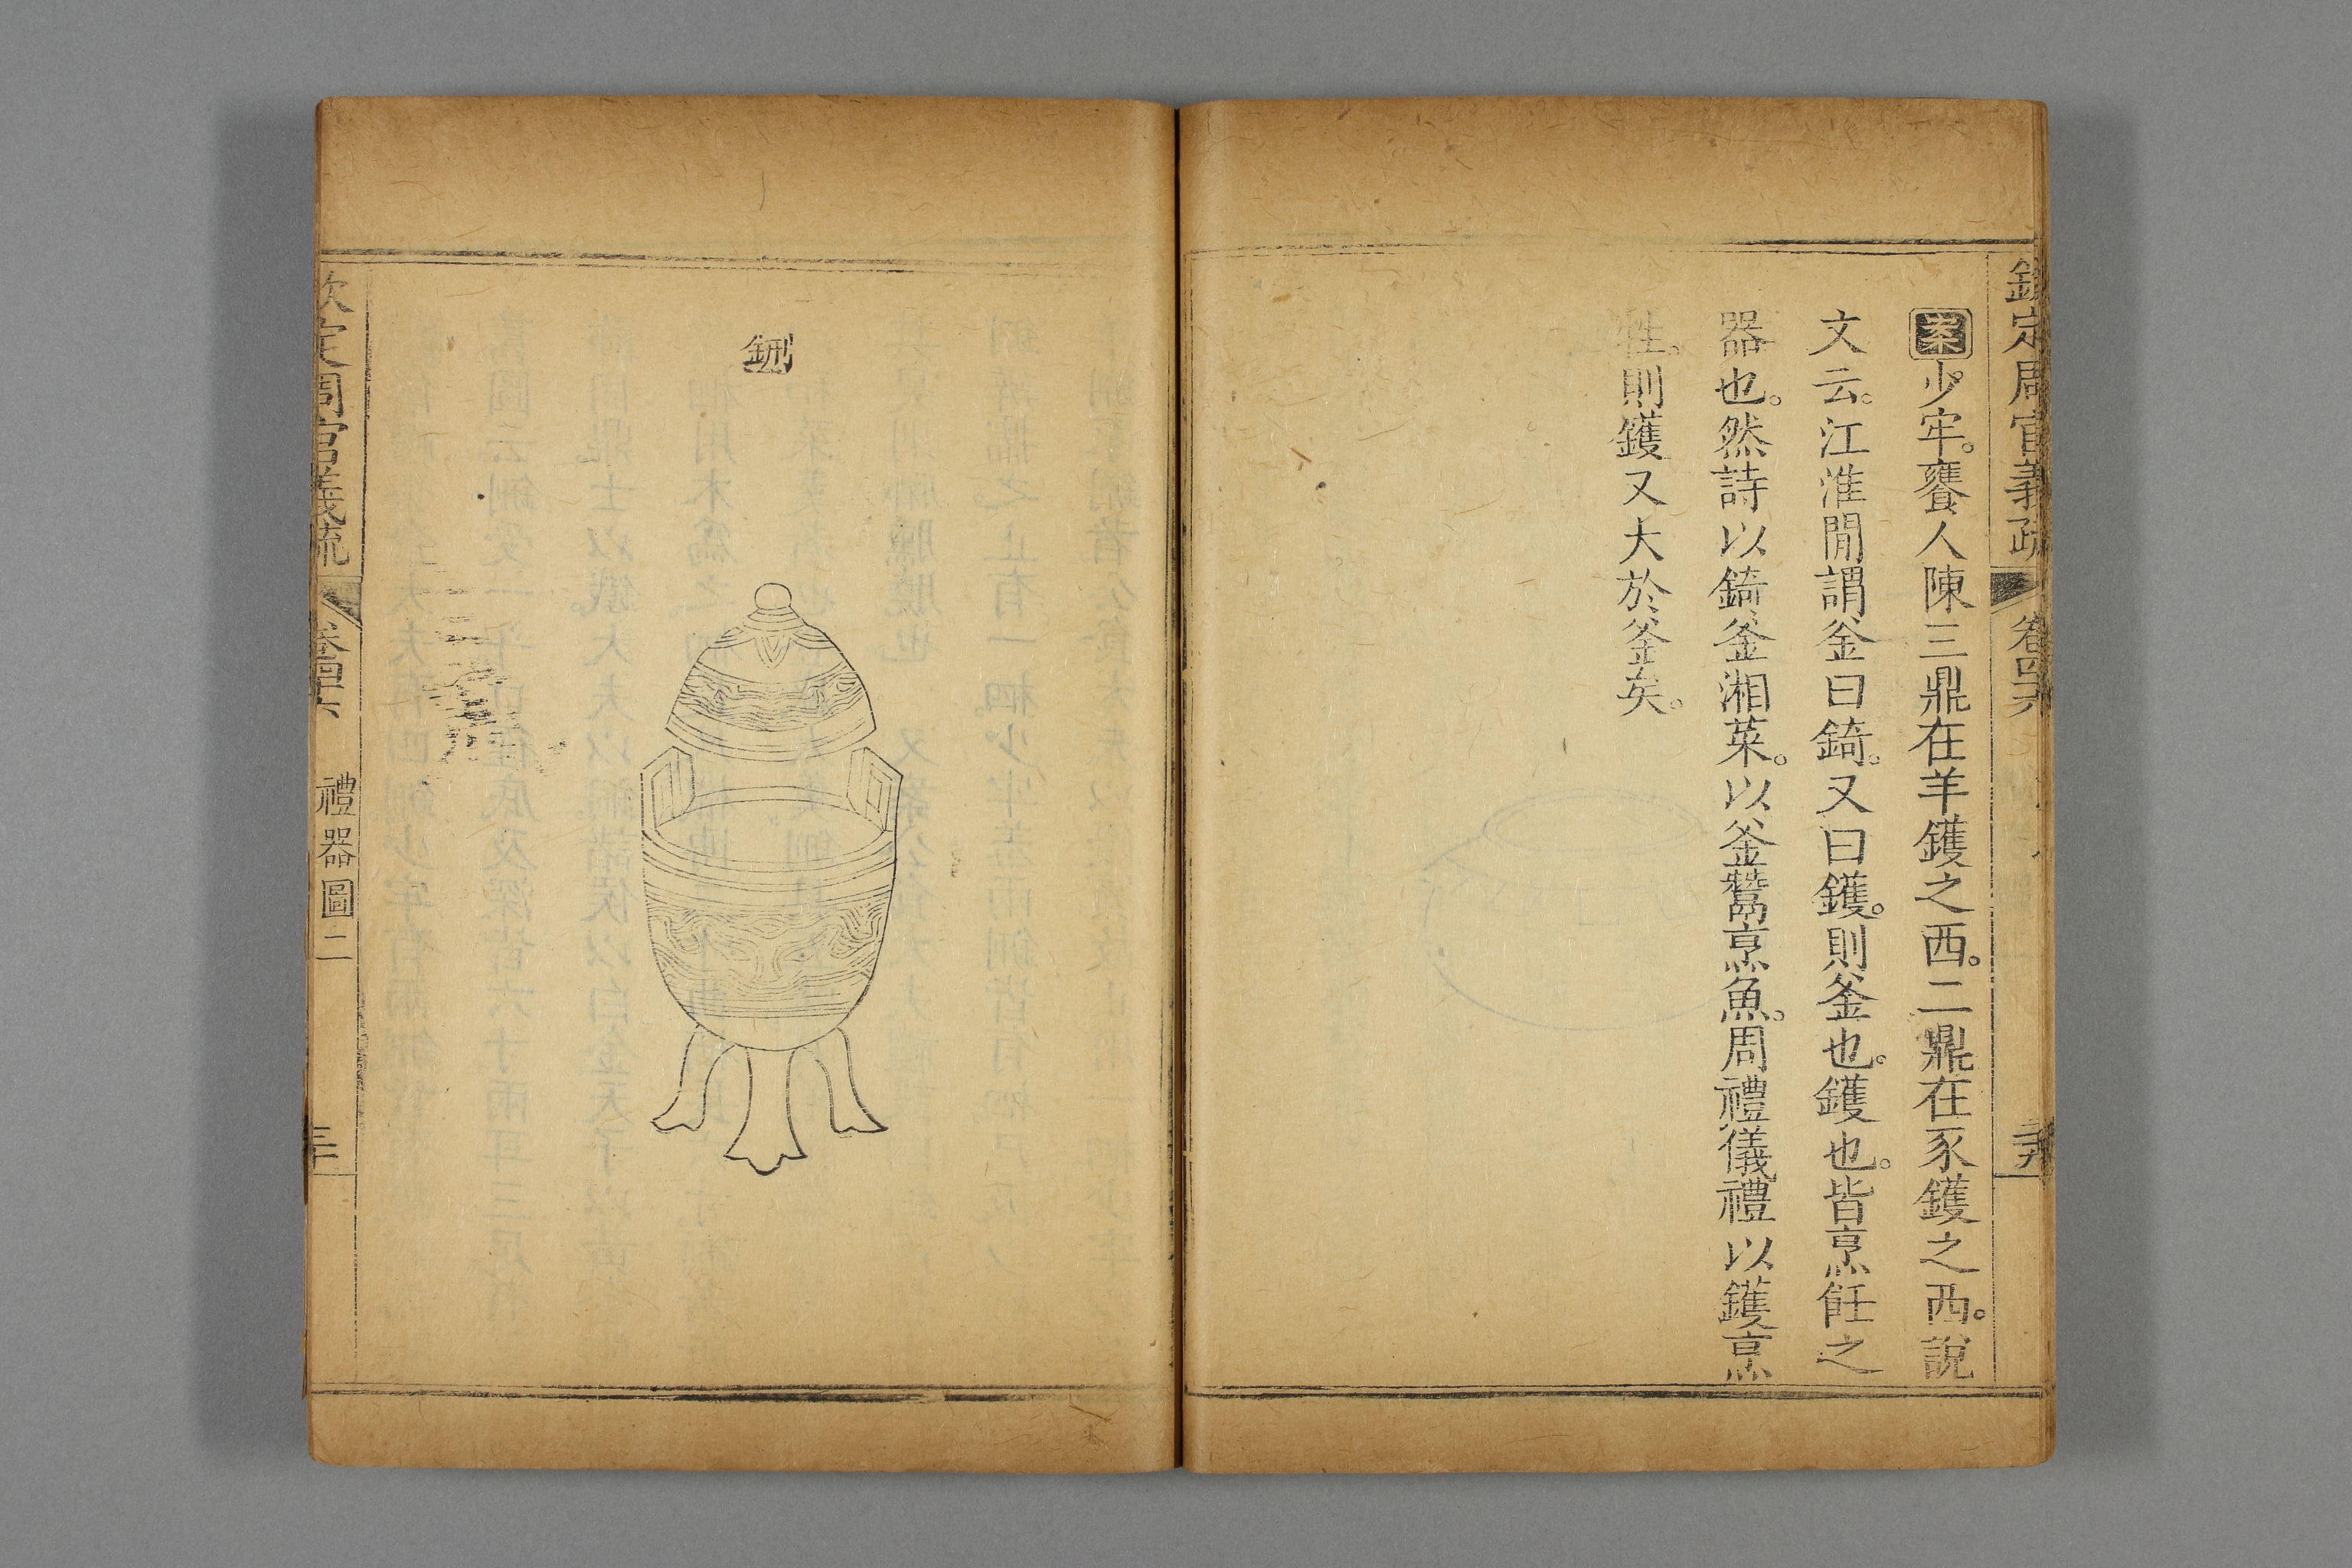 欽定周官義疏 卷四十六
案少牢。饔人陳三鼎在羊鑊之西。二鼎在豕鑊之西。說
文云。江淮閒謂釜曰錡。又曰鑊。則釜也。鑊也。皆烹飪之
器也。然詩以錡、釜湘菜。以釜鬵烹魚。周禮儀禮以鑊烹
牲。則鑊又大於釜矣。
鉶
欽定周官義疏 卷四十六 禮器圖二 三十